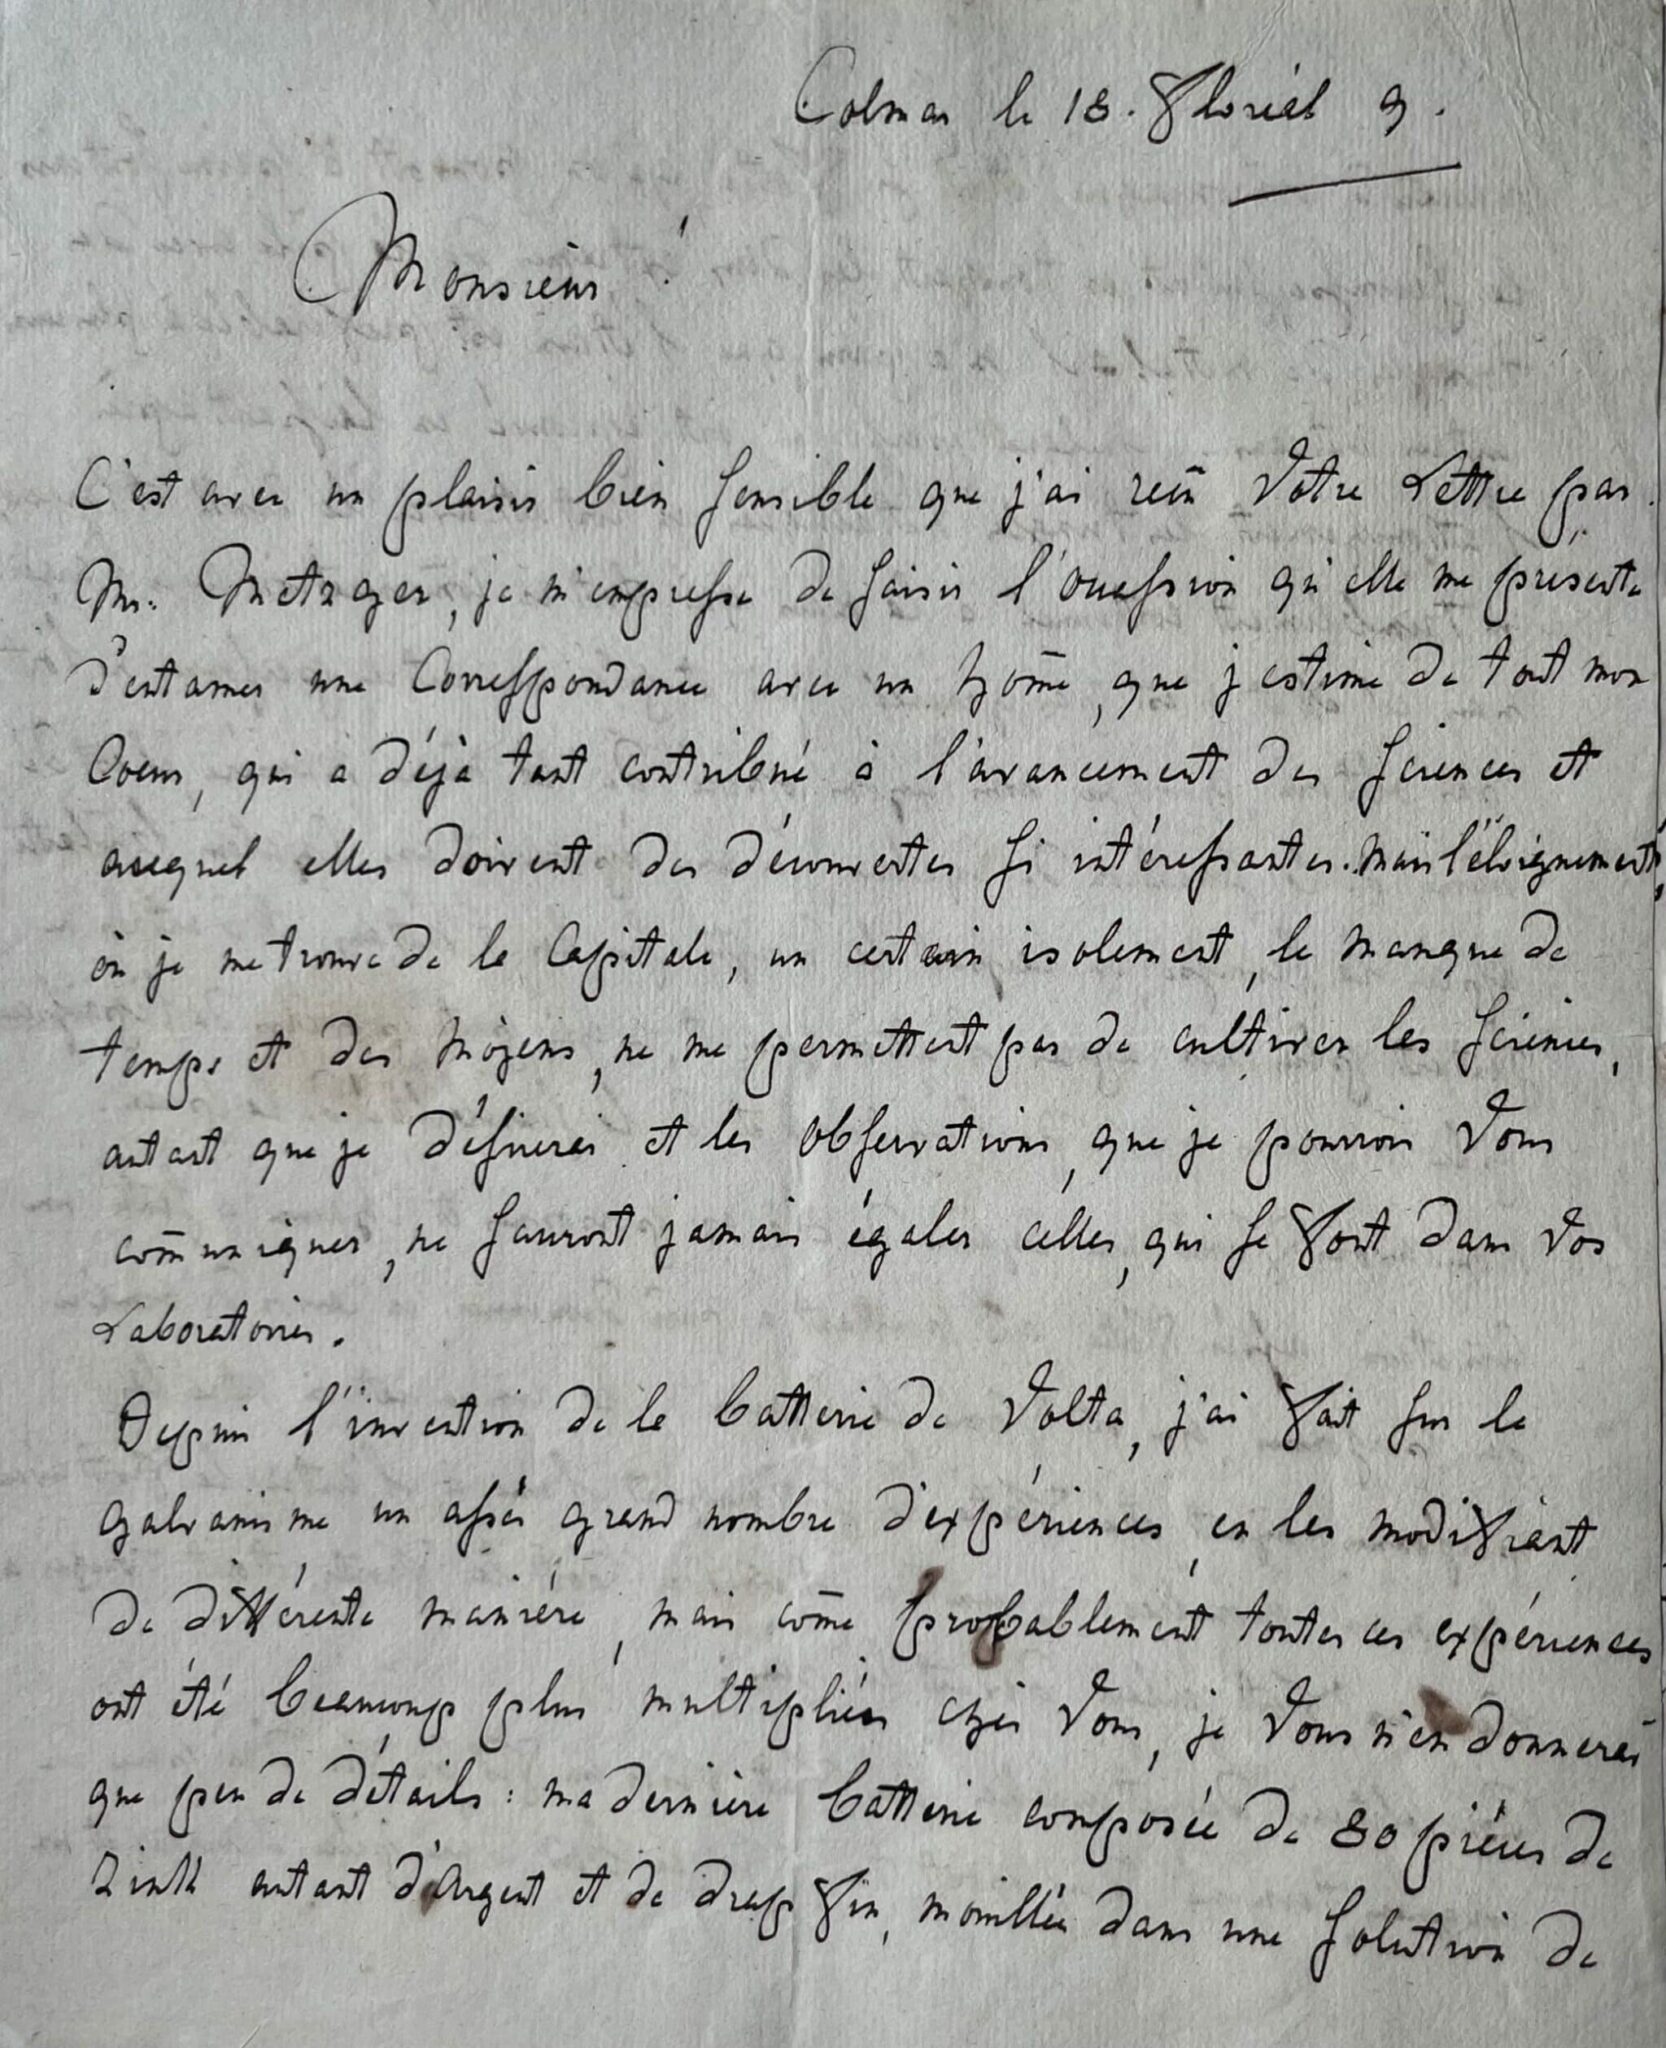 Colmar le 18. Floréal 9.
Monsieur !
C'est avec un plaisir bien sensible que j'ai reçu Votre Lettre par
Mr. Metzger, je m'empresse de saisir l'occassion qu'elle me présente
d'entamer une Correspondance avec un hom̄e, que j'estime de tout mon
Coeur, qui a déjà tant contribué à l'avancement des sciences et
auequel elles doivent des découvertes si intéressantes. Mais l'éloignement,
où je me trouve de la Capitale, un certain isolement, le manque de
temps et des moÿens, ne me permettent pas de cultiver les sciences,
autant que je désirerai et les observations, que je pourrois Vous
com̄uniquer, ne sauront jamais égaler celles, qui se font dans Vos
Laboratoires.
Depuis l'invention de la batterie de Volta, j'ai fait sur le
galvanisme un assés grand nombre d'expériences, en les modifiant
de différente manière, mais com̄e probablement toutes ces expériences
ont été beaucoup plus multipliées chés Vous, je Vous n'en donnerai
que peu de détails : ma dernière batterie composée de 80 pièces de
Zink autant d'Argent et de drap fin, mouillée dans une solution de